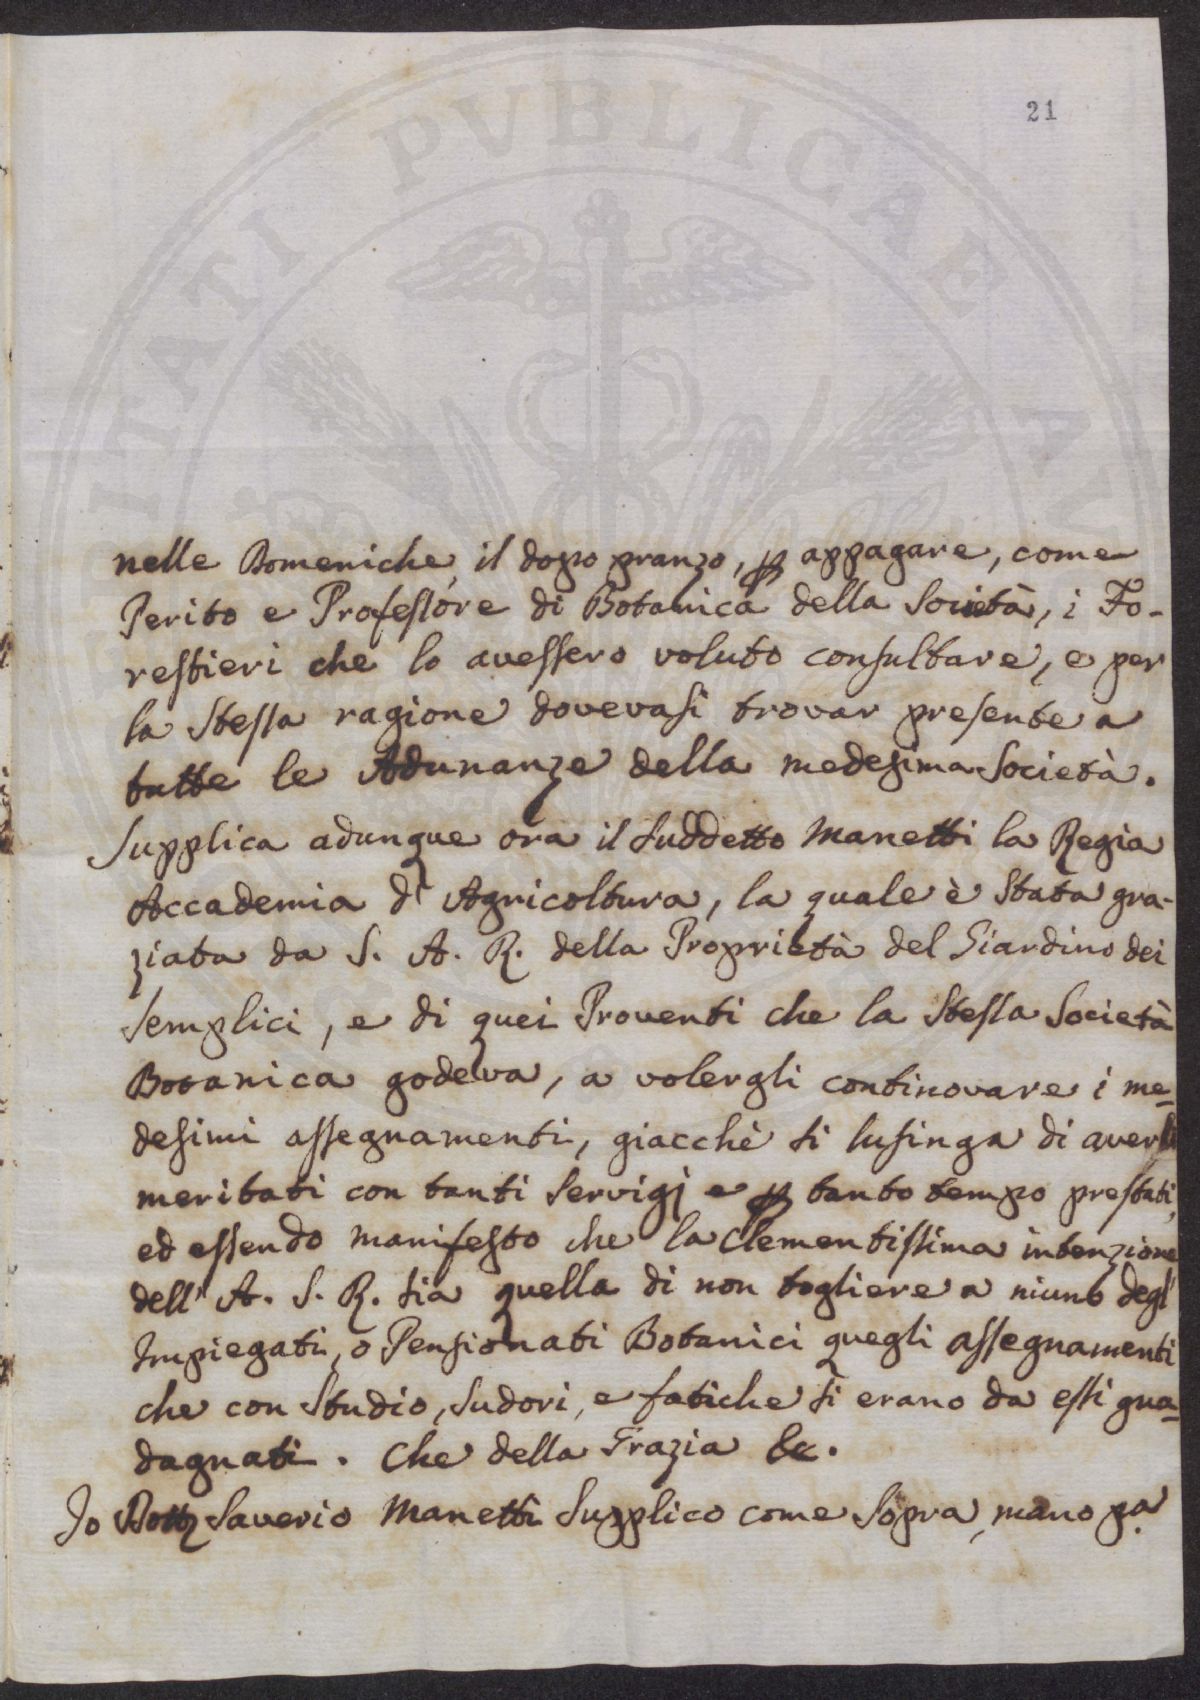 21
PROSPERITATI PVBLICAE AV
nelle Domeniche, il dopo pranzo, p appagare, come
Perito e Professore di Botanica della Società, i Fo-
restieri che lo avessero voluto consultare, e per
la Stessa ragione dovevasi trovar presente a
tutte le Adunanze della medesima Società.
Supplica adunque ora il Suddetto Manetti la Regia
Accademia d'Agricoltura, la quale è Stata gra-
ziata da S. A. R. della Proprietà del Giardino dei
Semplici, e di quei Proventi che la Stessa Società
Botanica godeva, a volergli continovare i me-
desimi assegnamenti, giacchè si lusinga di averli
meritati con tanti Servigj e p tanto tempo prestati,
ed essendo manifesto che la Clementissima intenzione
dell'A. S. R. sia quella di non togliere a niuno degl'
Impiegati, o Pensionati Botanici quegli assegnamenti
che con Studio, Sudori, e fatiche si erano da essi gua-
dagnati. Che della Grazia &c.
Io Dott Saverio Manetti Supplico come Sopra, mano pa